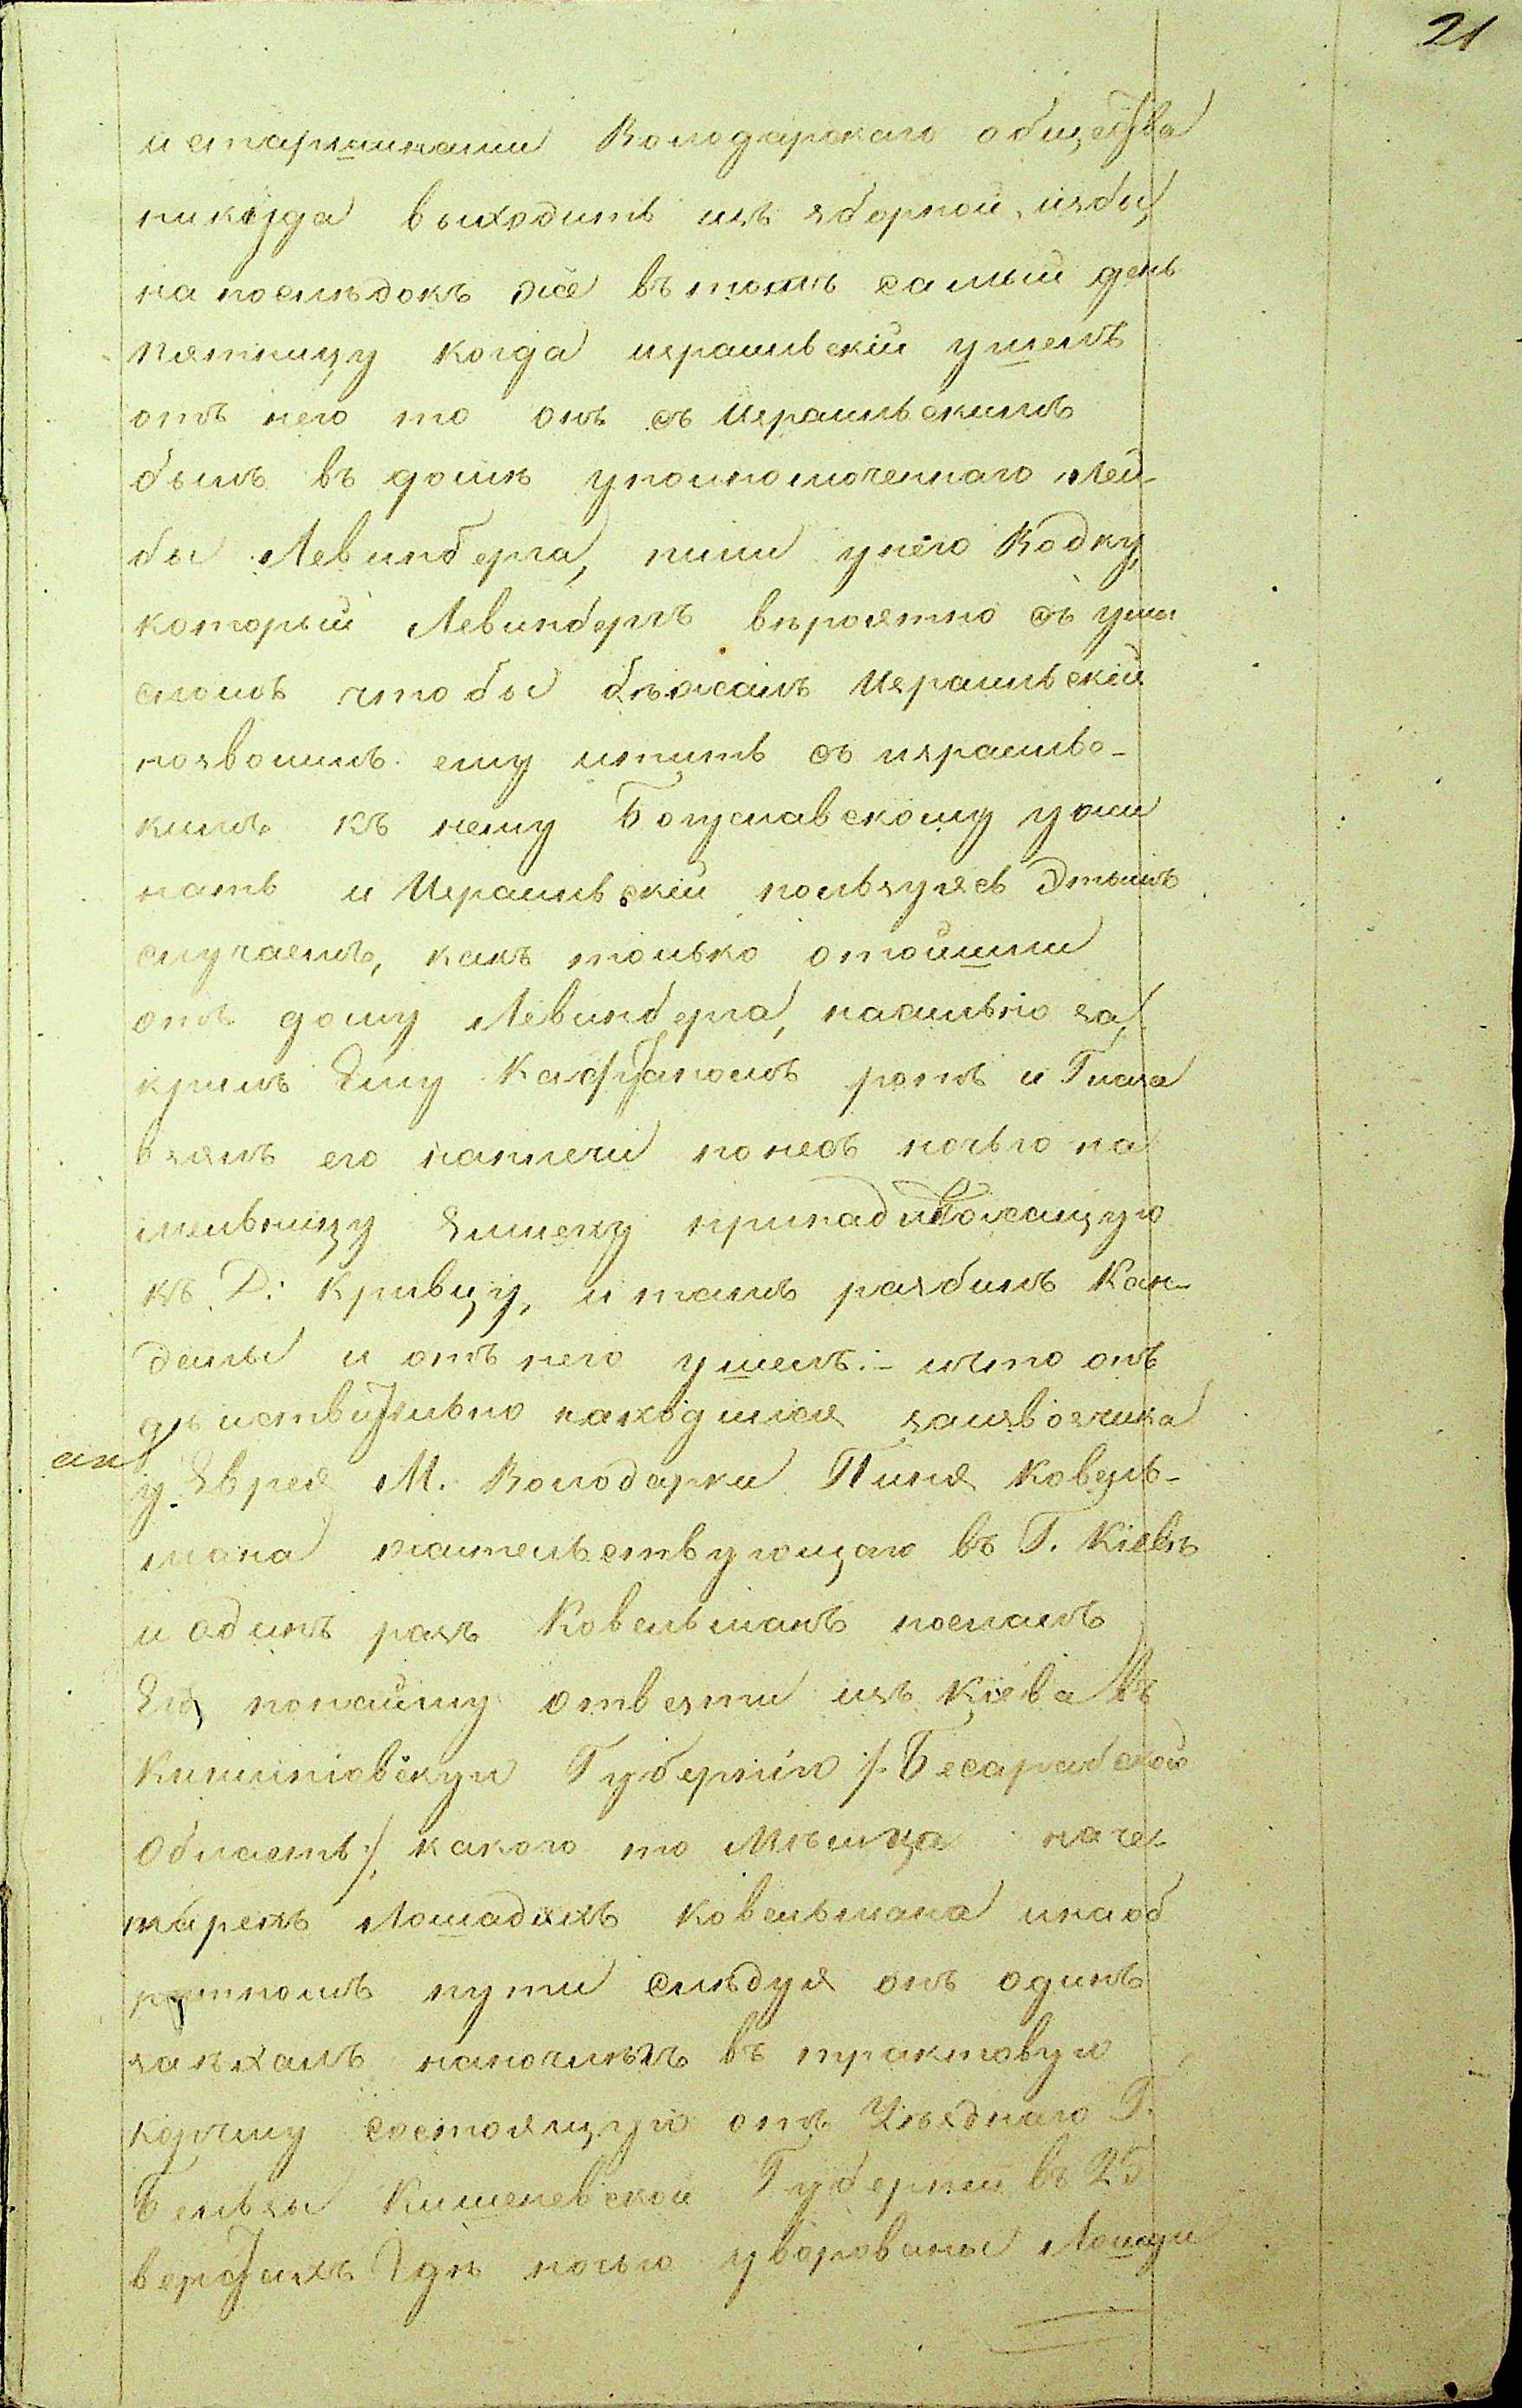 21
и старшинами Володарскаго общества
никуда выходить изъ зборной избы,
на послѣдокъ же въ тотъ самый день
пятницу когда израильскій ушелъ
отъ него то онъ съ Израильскимъ
былъ въ домѣ уполномоченнаго Лей-
бы Левинберга, пили унего Водку,
который Левинбергъ вѣроятно съ умы
сломъ чтобы бѣжалъ Израильскій
позволилъ ему итить съ израильс-
кимъ къ нему Богуславскому ужи
нать и Израильскій пользуясь Этымъ
случаемъ, какъ только отойшли
отъ дому Левинберга, насильно за
крилъ Ему Кафтаномъ ротъ и Глаза
взялъ его наплечи понесъ ночью на
мельницу принадлежащую
къ Д: Кривцу, и тамъ разбилъ Кан-
далы и отъ него ушелъ:- что онъ
дѣйствительно находился заизвозчика
у Еврея М. Володарки Пиня Ковель-
мана жительствующаго въ Г. Кіевѣ
и одинъ разъ Ковельманъ послалъ
Его понайму отвезти изъ Кіева въ
Кишиніовскую Губернію /: Бесарабской
Область :/ какого то Нѣмца наче-
тырехъ Лошадяхъ Ковельмана инаоб
ратномъ пути слѣдуя онъ одинъ
заѣхалъ наночлѣгъ въ трактовую
корчму состоящую отъ Уѣзднаго Г.
Бельзы Кишеневской Губерніи въ 25
верстахъ Гдѣ ночью уворованы Лошади